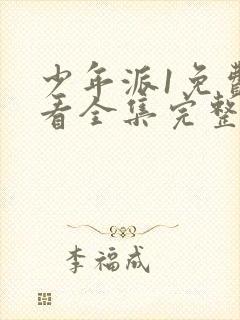 少年派1免费
看全集完整
李福成